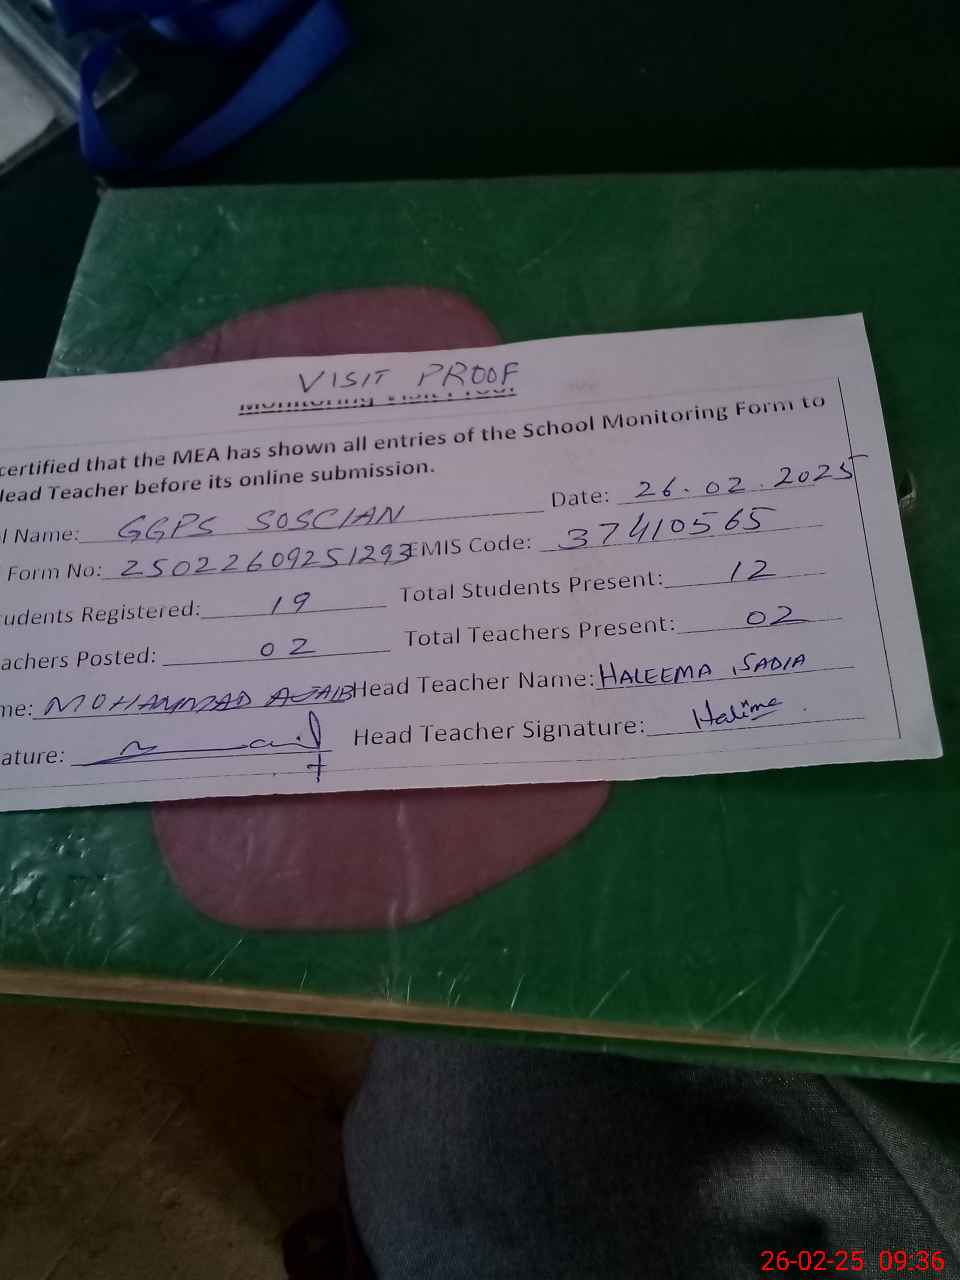 VISIT PROOF
Monitoring Visit Proof
certified that the MEA has shown all entries of the School Monitoring Form to
Head Teacher before its online submission.
l Name: GGPS SOSCIAN Date: 26.02.2025
Form No: 25022609251293 EMIS Code: 37410565
tudents Registered: 19 Total Students Present: 12
achers Posted: 02 Total Teachers Present: 02
me: MOHAMMAD AJAIB Head Teacher Name: HALEEMA SADIA
ature: Head Teacher Signature: Halima
26-02-25 09:36